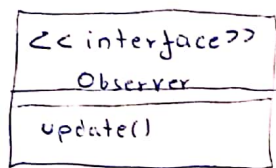 <<interface>>
Observer
update()